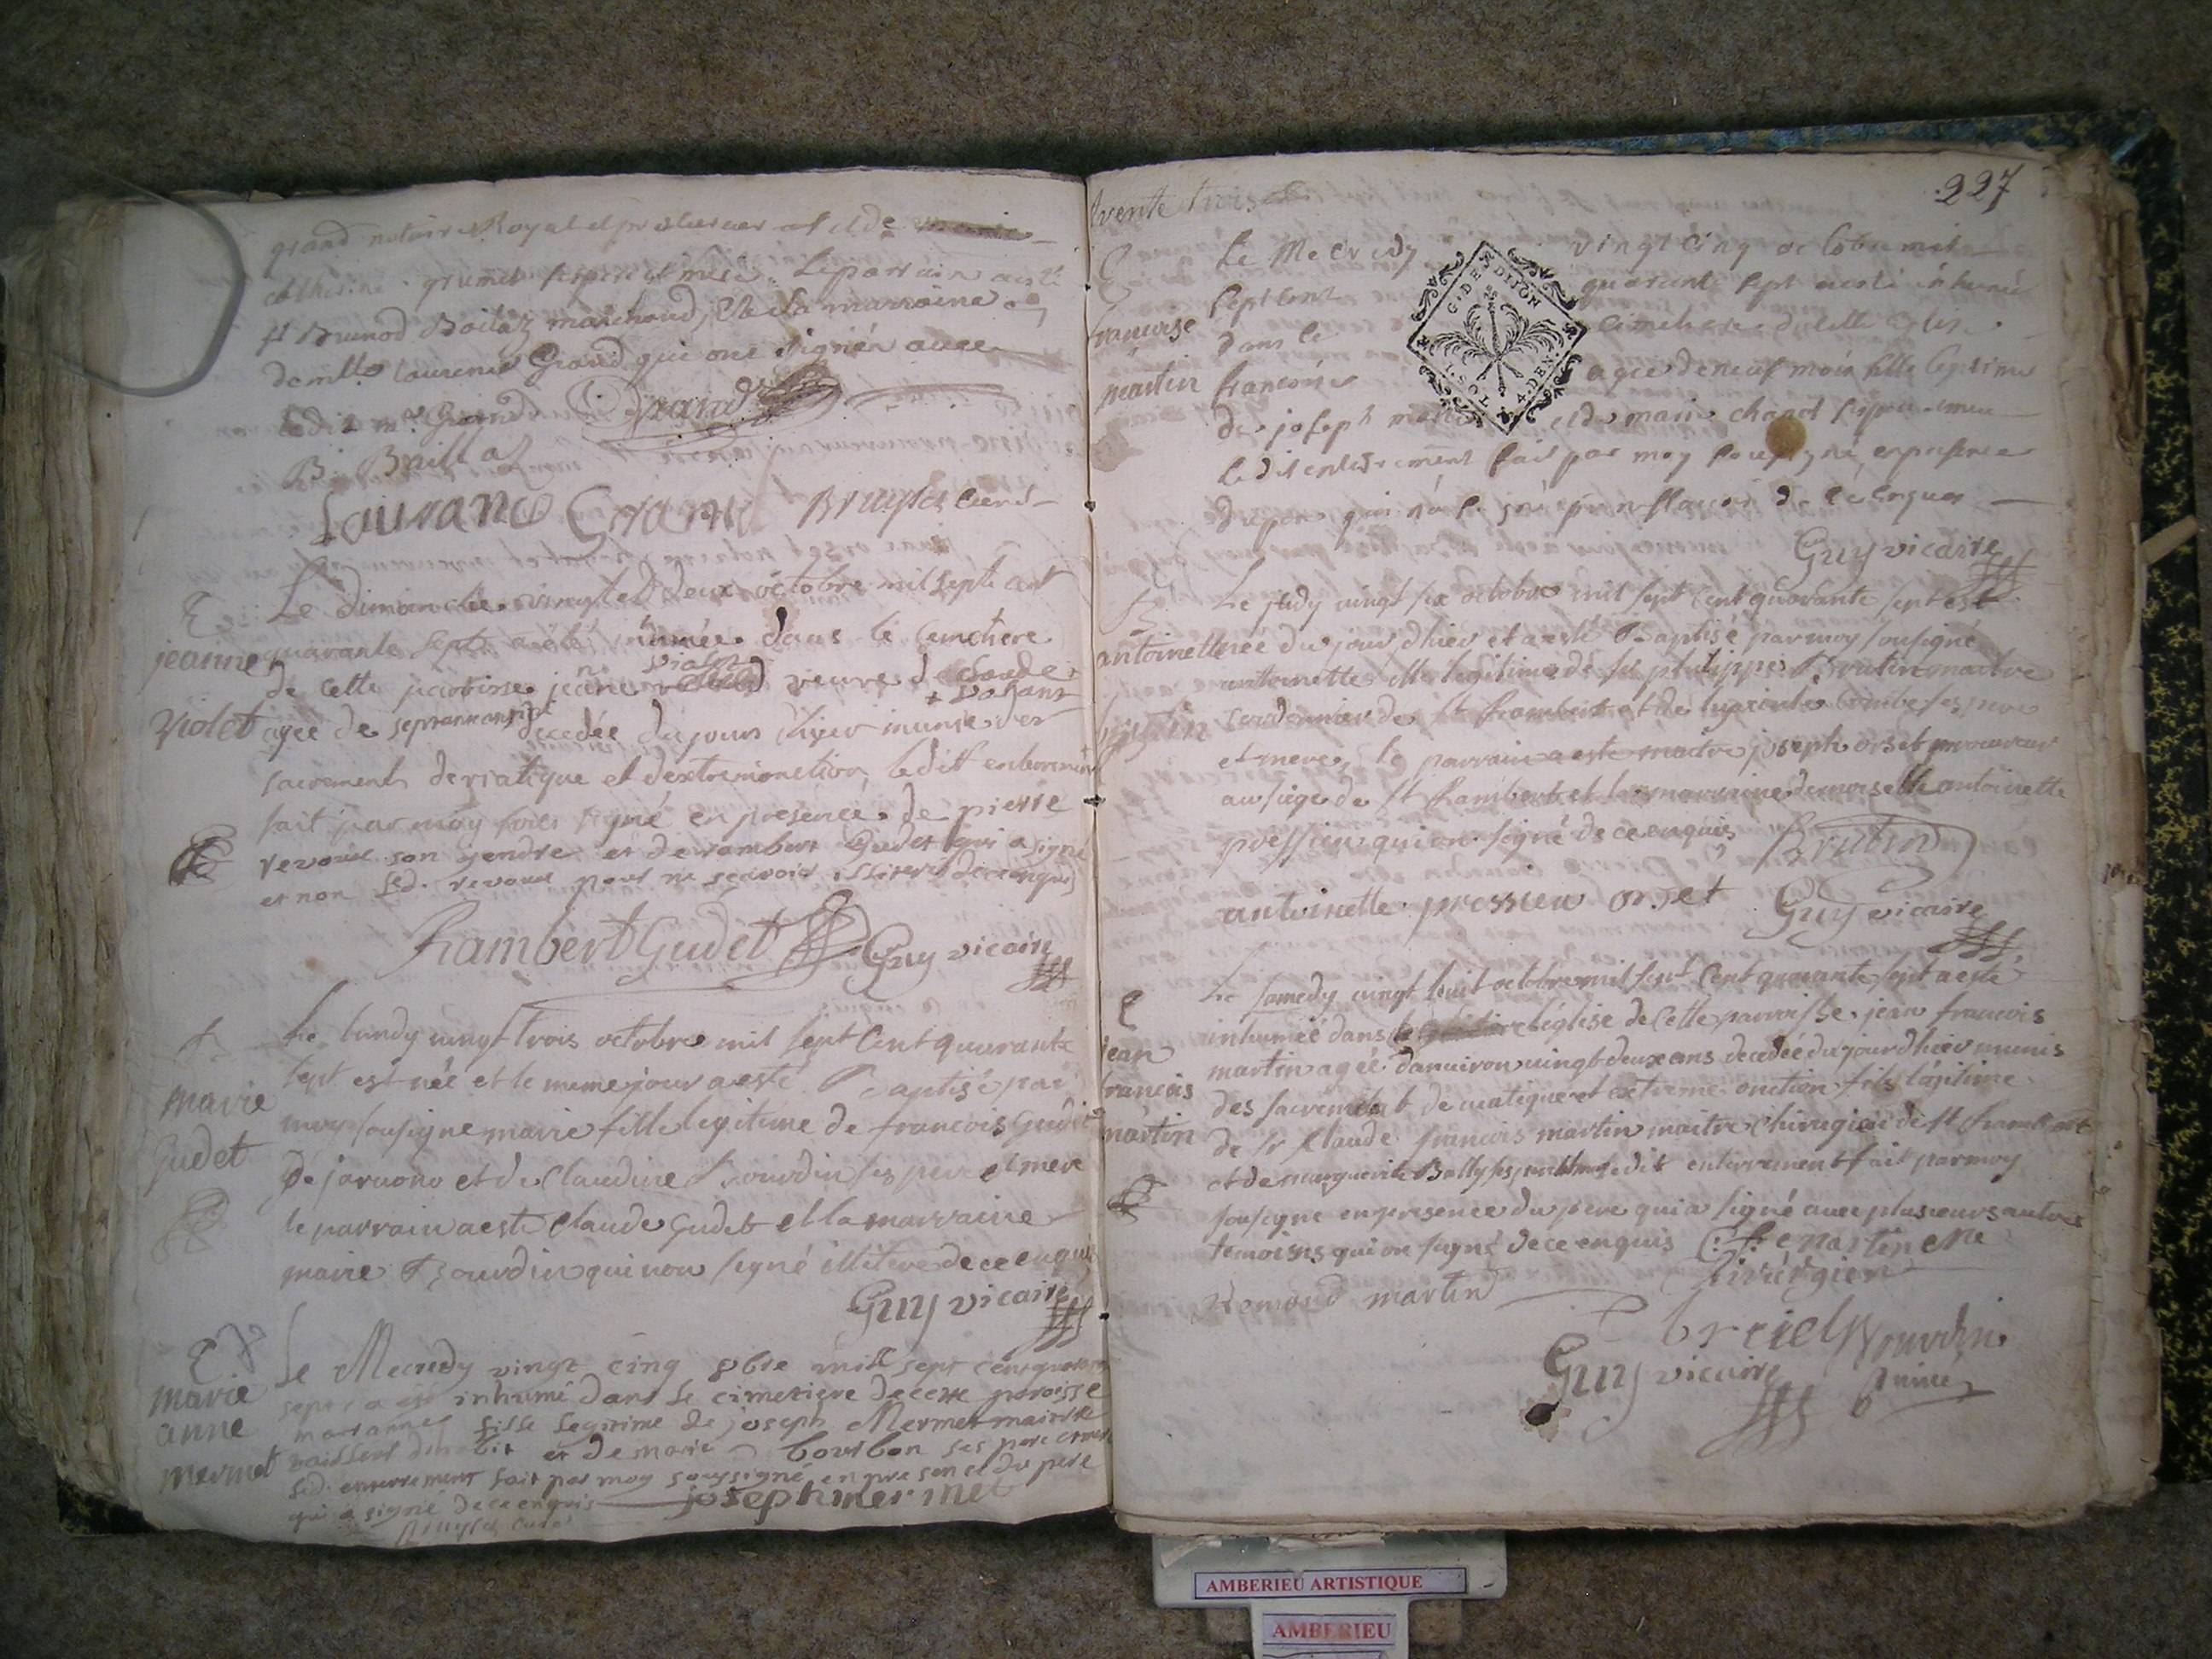 grand notaire Royal et procureur et de
catherine grumet ses pere et mere. Le parrain a esté
sr Brunod Baillaz marchand, Et la marraine
demlle laurence Grand qui ont signéz avec
ledit mr. Grand Grand
B. Baillaz
Laurance Grand Bruyset Curé
E
jeanne
violet
Le dimanche vingt et deux octobre mil sept cent
quarante sept a été inhumée dans le Cemetiere
de cette parroisse jeanne violet veuve de Claude
agée de decedée du jours d'hyer munie des
sacrements de viatique et d'extremonction ledit enterrement
fait par moy sous signé en presence de pierre
revoux son gendre et de rambert Gudet qui a signé
et non led. revoux pour ne scavoir de ce enquis
Rambert Gudet Guy vicaire
marie
Gudet
Le lundy vingt trois octobre mil sept Cent quarante
sept est née et le meme jour a esté Baptisé par
moy sousigne marie fille legitime de francois Gudet
de javorno et de Claudine Bourdin ses pere et mere
le parrain a esté Claude Gudet et la marraine
marie Bourdin qui non signé illitere de ce enquis
Guy vicaire
E
marie
anne
mermet
Le Mecredy vingt cinq 8bre mill sept cent quarante
sept a esté inhumé dans le cimetiere de cette paroisse
marianne fille legitime de joseph Mermet maitre
tailleur d'habit et de marie bourbon ses pere et mere
led. enterrement fait par moy soussigné en presence du pere
qui a signé de ce enquis joseph mermet
Bruyset curé
trente trois
227
E
francoise
martin
Le Mecredy vingt cinq octobre mil
sept cent quarante sept a esté inhumé
dans le cimetiere de cette
francoise agée de neuf mois fille legitime
de joseph martin et de marie chanel ses pere et mere
ledit enterrement fait par moy sousigné en presence
du pere qui n'a signé pour ne scavoir de ce enquis
Guy vicaire
G. DE DIJON
antoinette
brutin
Le jeudy vingt six octobre mil sept cent quarante sept est
née du jour d'hier et a esté Baptisé par moy sousigné
antoinette fille legitime de sr philippe Brutin maitre
cordonnier de st Rambert et de hyacinte Combe ses pere
et mere, le parrain a esté maitre joseph orset procureur
au siege de st Rambert et la marraine demoiselle antoinette
pressieu qui on signé de ce enquis Brutin
antoinette pressieu orset Guy vicaire
E
jean
francois
martin
Le samedy vingt huit octobre mil sept Cent quarante sept a esté
inhumée dans l'église de Cette parroisse jean francois
martin agée d'anviron vingt deux ans decedée du jour d'hier munis
des sacrements de viatique et extreme onction fils legitime
de sr Claude francois martin maitre Chirugien de st Rambert
et de marguerite Bally ses pere et mere ledit enterrement fait par moy
sousigne en presence du pere qui a signé avec plusieurs autres
temoins qui on signé de ce enquis C: f: martin me
Chirurgien
Remond martin
breiel Bourdin
Guy vicaire
AMBERIEU ARTISTIQUE
AMBERIEU